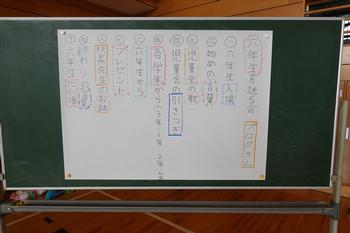 六年生を送る会
プログラム
一 六年生入場
二 始めの言葉
三 児童会の歌
四 児童会の引きつぎ
五 各学年から(3年・1年 2年・4年
六 六年生から
七 プレゼント
八 校長先生のお話
九 終わりの言葉
十 六年生たい場